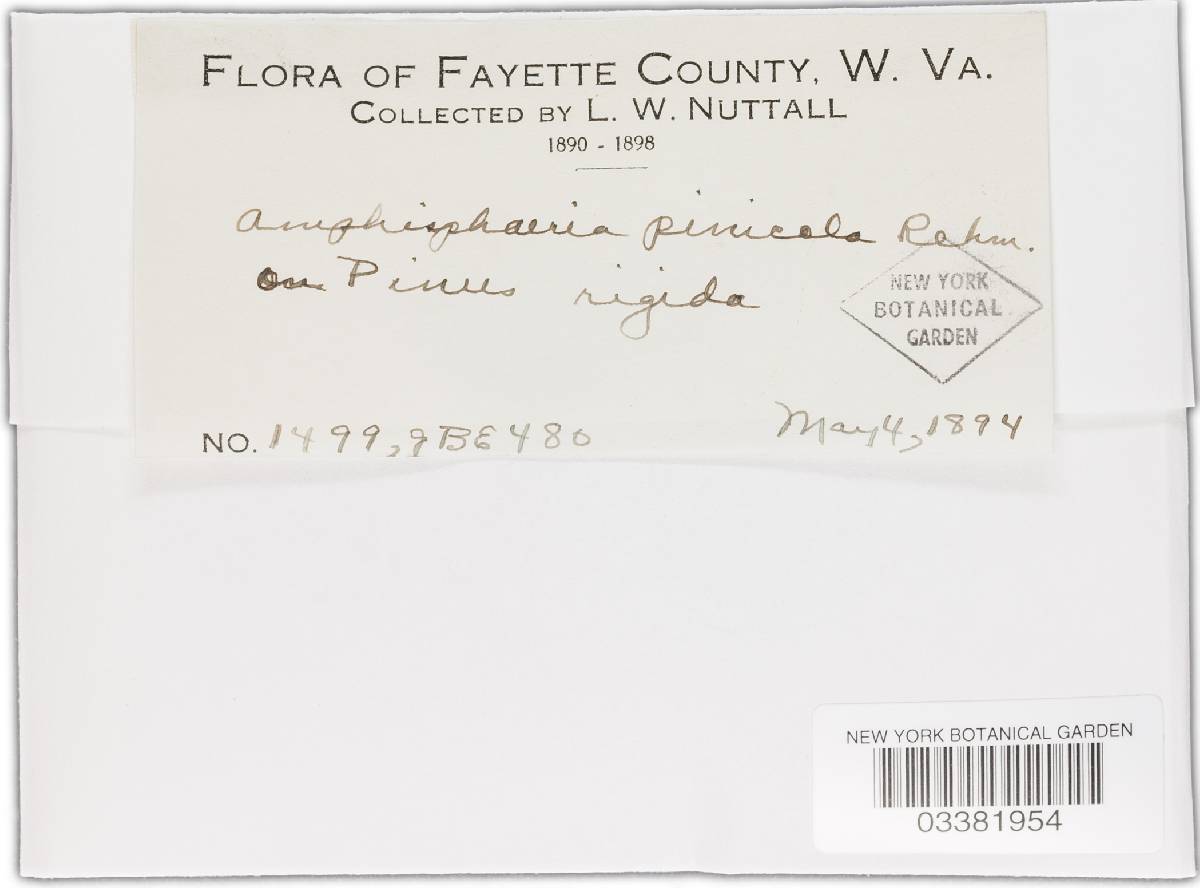 FLORA OF FAYETTE COUNTY, W. VA.
COLLECTED BY L. W. NUTTALL
1890 - 1898
Amphisphaeria pinicola Rehm.
on Pinus rigida
NEW YORK
BOTANICAL
GARDEN
NO. 1499, JBE480
May 4, 1894
NEW YORK BOTANICAL GARDEN
03381954